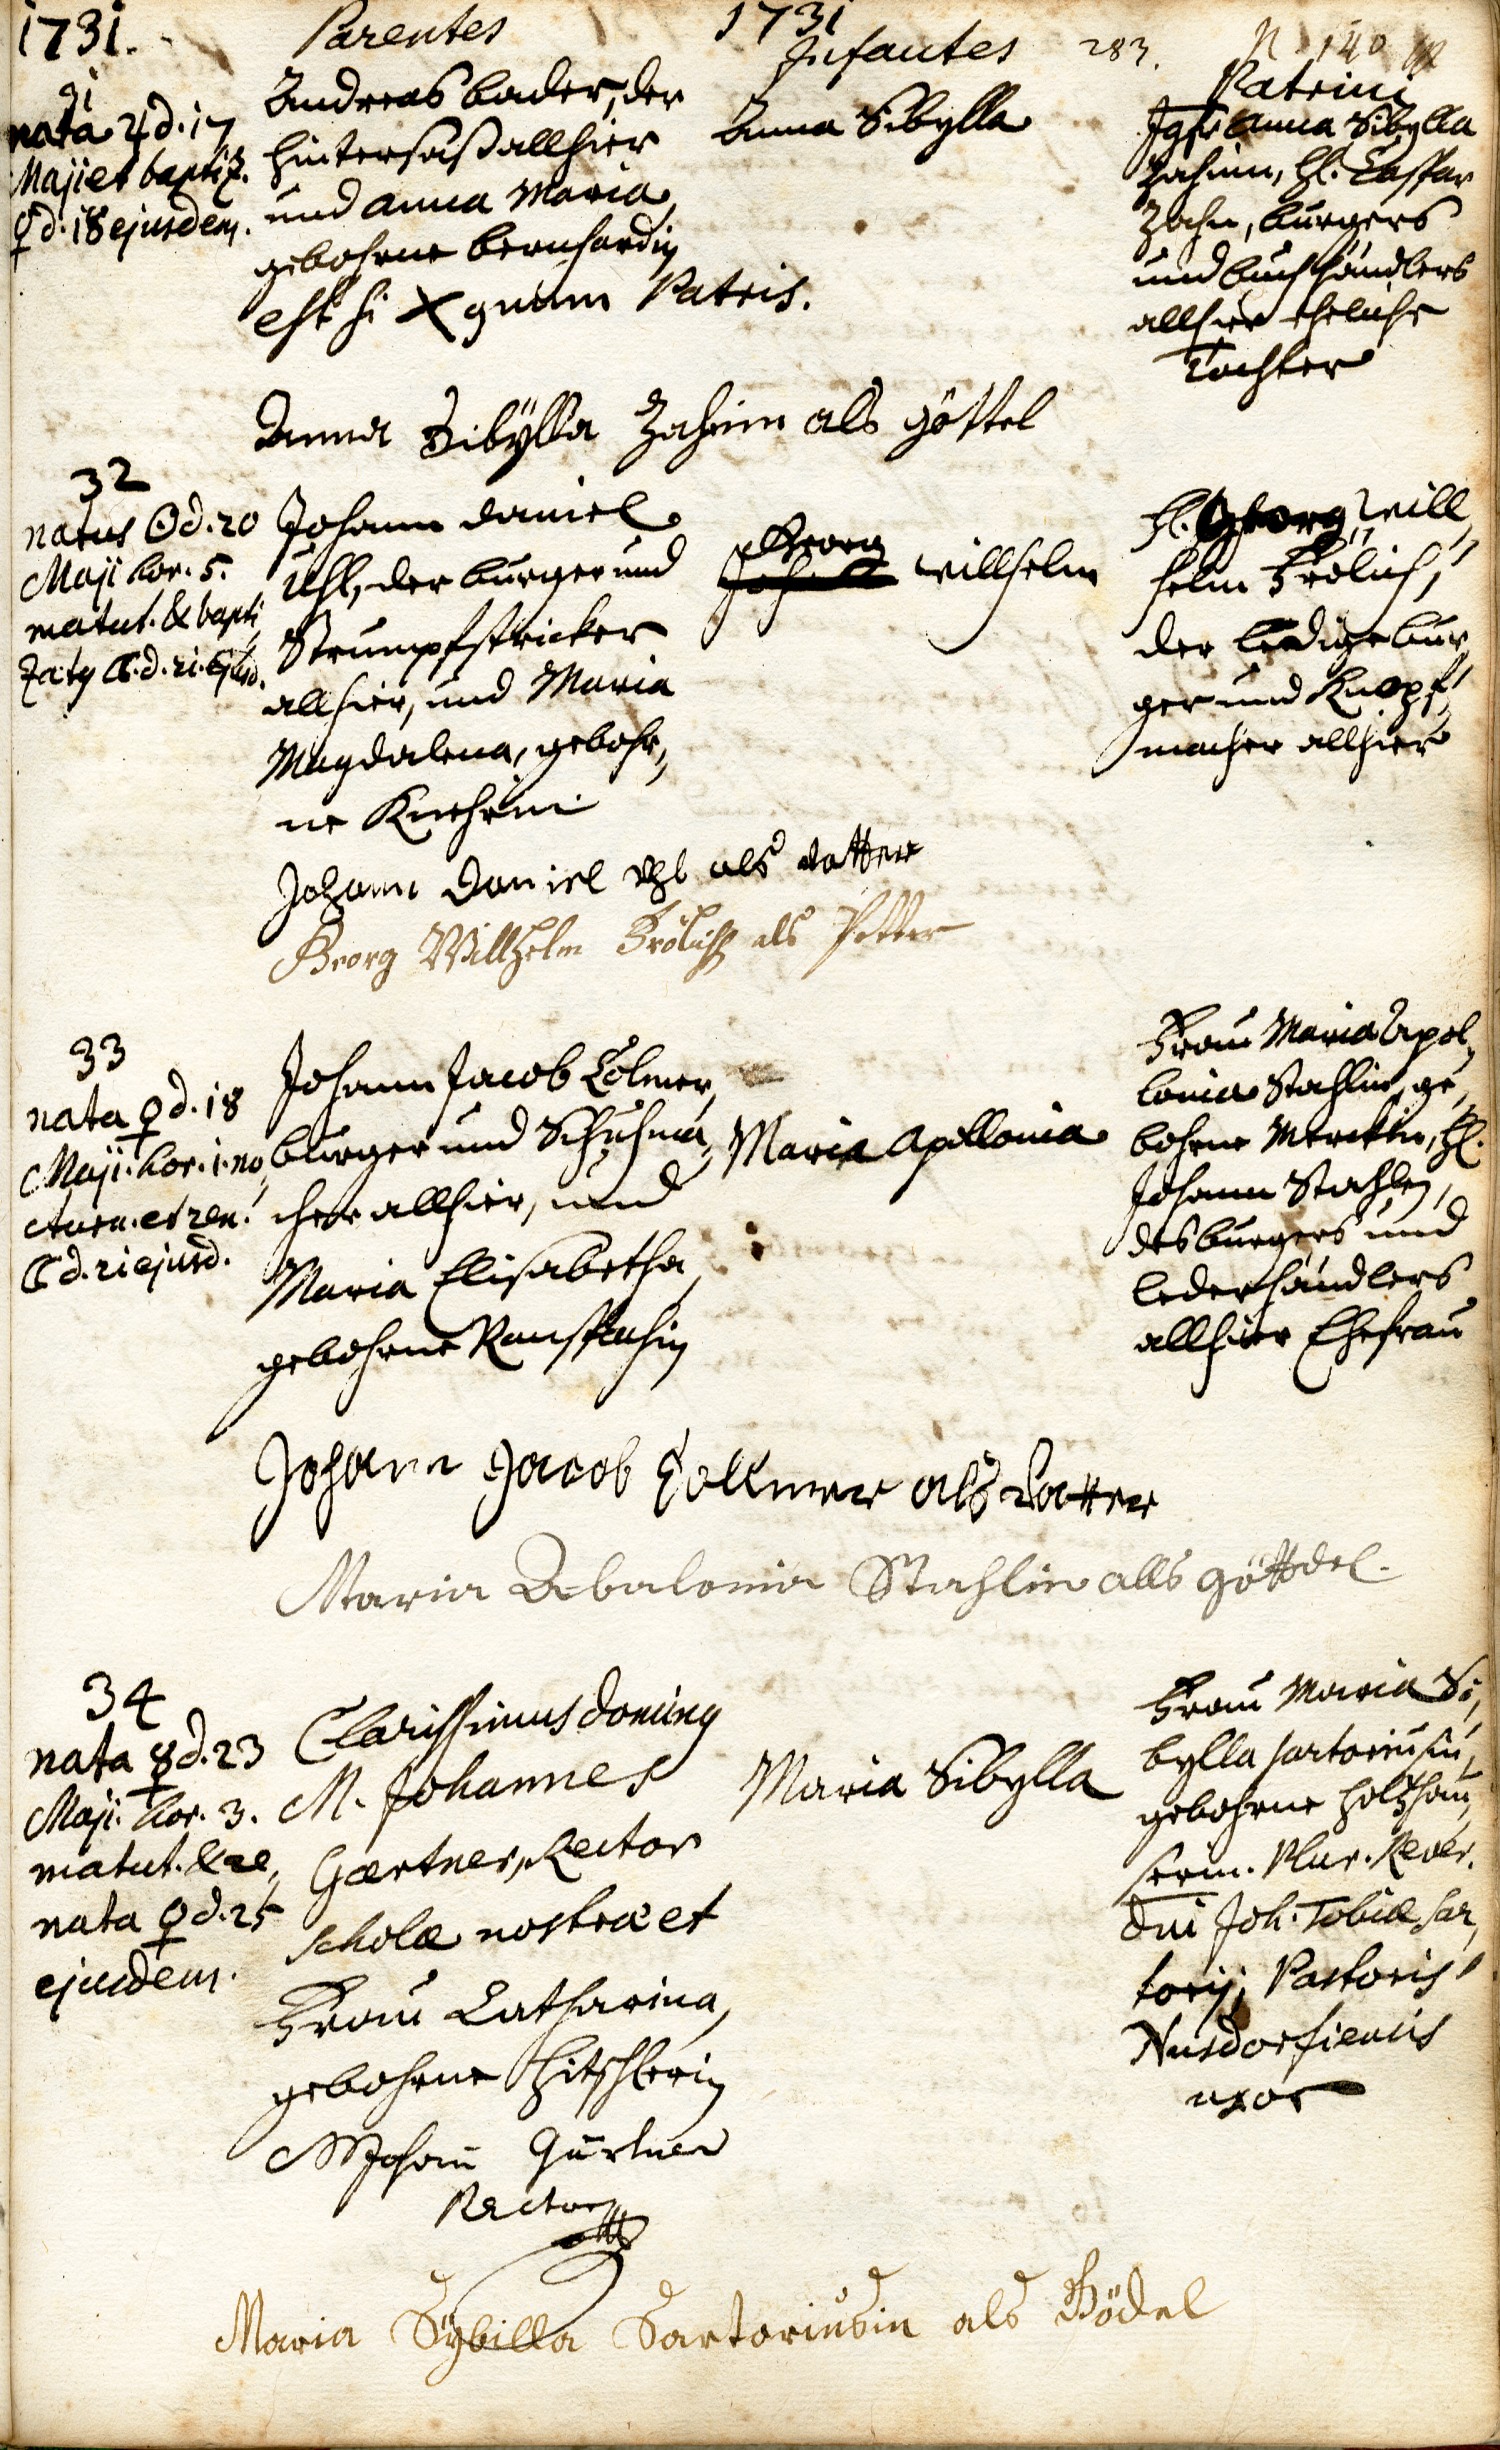 1731. Parentes 1731 Infantes 283. N. 140
31
nata ♃ d. 17
Maji et baptiz.
♀ d. 18 ejusdem.
Andreas Bader, der
Hintersaß allhier
und Anna Maria,
gebohrne Bernhardin
est hi X gnum Patris.
Anna Sibylla
Patrini
Jgfr. Anna Sibylla
Zahnin, H. Caspar
Zahn, burgers
und buchhändlers
allhier eheliche
Tochter
Anna Sibÿlla Zahnin als göttel
32
natus ☉ d. 20
Maji hor. 5.
matut. & bapti,
zatg ☾. d. 21. Ejusd.
Johann Daniel
Uhl, der burger und
Strumpfstricker
allhier, und Maria
Magdalena, gebohr,,
ne Kuehnin
Georg
Willhelm
H. Georg Will,,
helm Frölich,
der ledige bur,,
ger und Knopf,,
macher allhier
Johann Daniel Uhl als Vatter
Georg Willhelm Frölich als Petter
33
nata ♀ d. 18
Maji. hor. 1. no,,
cturn. et ren.
☾ d. 21 ejusd.
Johann Jacob Colmer,
burger und Schuhma,,
cher allhier, und
Maria Elisabetha,
gebohrne Ranspachin
Maria Apollonia
Frau Maria Apol,,
lonia Stahlin, ge,,
bohrne Mercklin, H.
Johann Stahlen,
des burgers und
lederhändlers
allhier Ehefrau
Johann Jacob Collmer als Vatter
Maria Abalonia Stahlin alls göttdel.
34
nata ☿ d. 23
Maji. hor. 3.
matut. & re,,
nata ♀ d. 25
ejusdem.
Clarissimus Doming
M. Johannes
Gærtner, Rector
scholæ nostræ et
Frau Catharina,
gebohrne Hitschlerin
Maria Sibylla
Frau Maria Si,,
bylla Sartoriusin,
gebohrne Holtzhau,,
serin. Plur. Rever.
Dni Joh. Tobiæ Sar,,
torij, Pastoris
Nusdorfiensis
uxor
M Johann Gärtner
Rector
Maria Sÿbilla Sartoriusin als Gödel